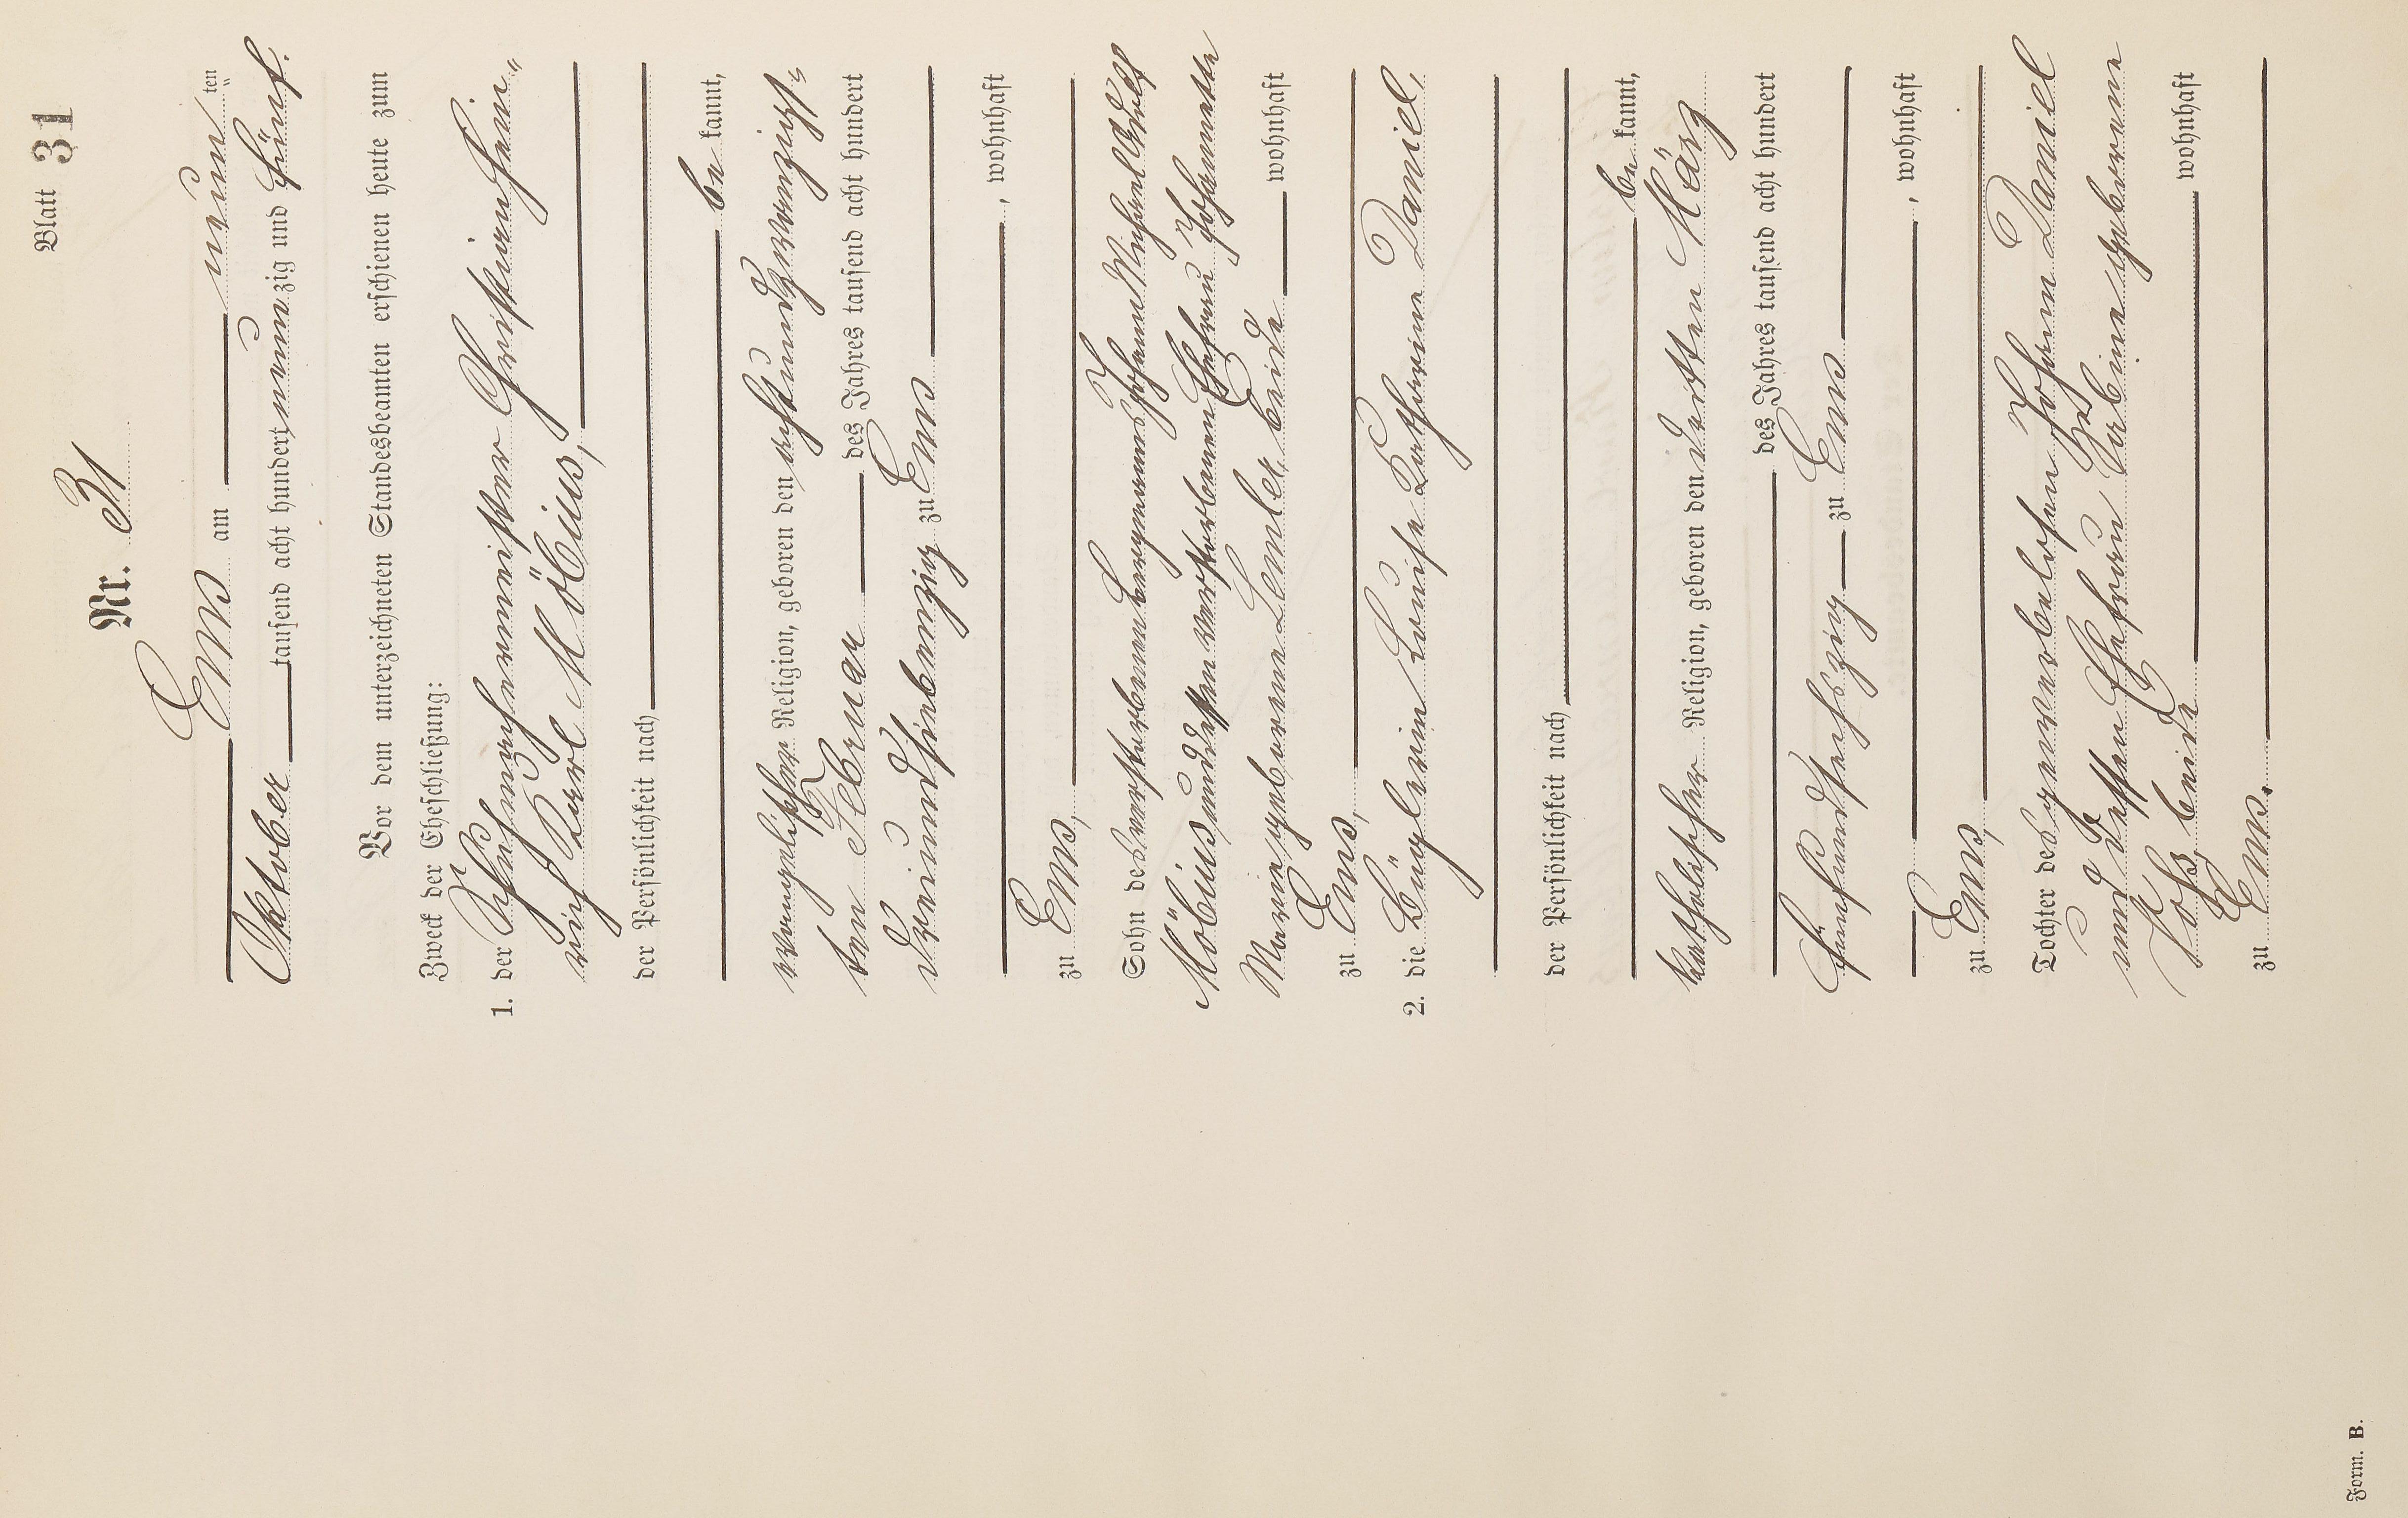 Blatt 31
Nr. 31
Ems am neun ten
Oktober tausend acht hundert neunzig und fünf.
Vor dem unterzeichneten Standesbeamten erschienen heute zum
Zweck der Eheschließung:
1. der Schuhmachermeister Christian Hein"
rich Karl Möbius,
der Persönlichkeit nach
be kannt,
evangelischer Religion, geboren den achtundzwanzigs=
ten Februar des Jahres tausend acht hundert
dreiundsiebenzig zu Ems
, wohnhaft
zu Ems,
Sohn des verstorbenen Bergmanns Johann Michael Adolf
Möbius und dessen verstorbenen Ehefrau Johannette
Maria geborene Lemler, beide wohnhaft
zu Ems,
2. die Büglerin Louise Katharina Daniel,
der Persönlichkeit nach
be kannt,
katholischer Religion, geboren den dritten März
des Jahres tausend acht hundert
fünfundsechszig zu Ems
, wohnhaft
zu Ems,
Tochter des gewerbelosen Johann Daniel
und dessen Ehefrau Sabina geborene
beide wohnhaft
zu Ems.
Form. B.